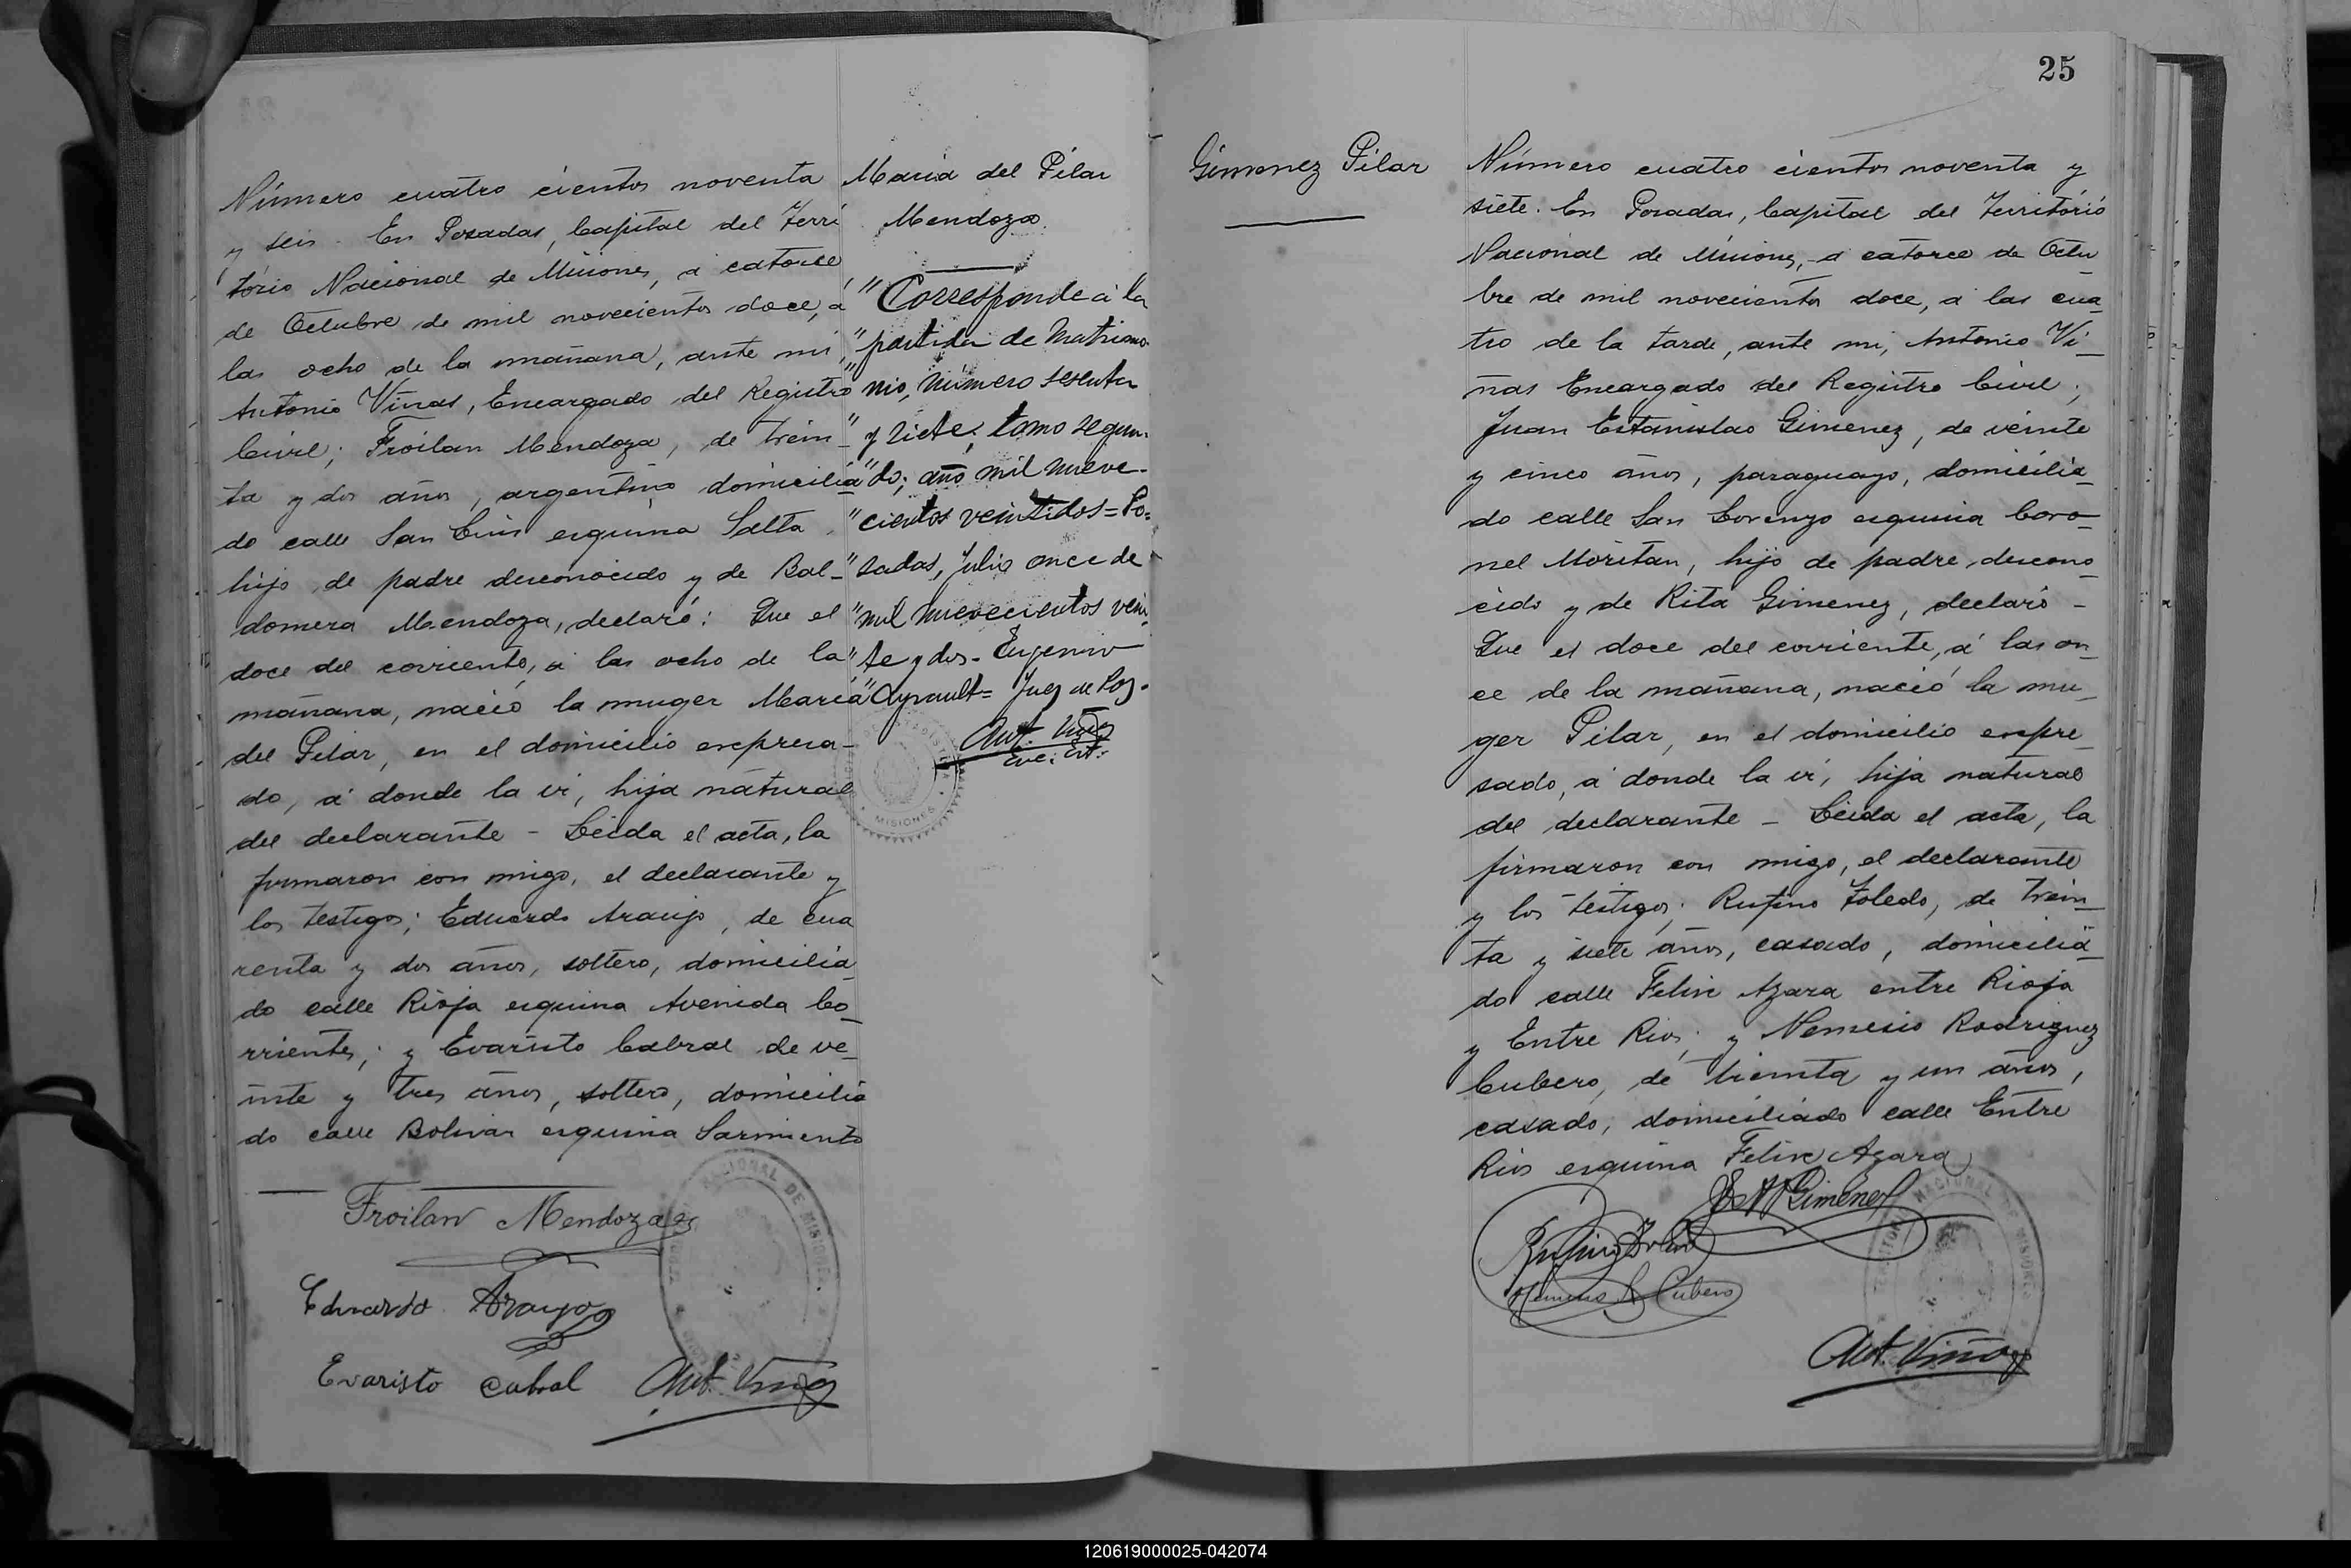 Número cuatro cientos noventa
y seis. En Posadas, Capital del Terri
tório Nacional de Misiones, á catorce
de Octubre de mil novecientos doce, á
las ocho de la mañana, ante mi,
Antonio Viñas, Encargado del Registro
Civil; Froilan Mendoza, de trein-
ta y dos años, argentino domicilia
do calle San Luis esquina Salta,
hijo de padre desconocido y de Bal-
domera Mendoza, declaró: Que el
doce del corriente, á las ocho de la
mañana, nació la muger Maria
del Pilar, en el domicilio expresa-
do, á donde la vi, hija natural
del declarante - Leida el acta, la
firmaron con migo, el declarante y
los testigos; Eduardo Araujo, de cua
renta y dos años, soltero, domicilia
do calle Rioja esquina Avenida Co-
rrientes; y Evaristo Cabral de ve-
inte y tres años, soltero, domicilia
do calle Bolivar esquina Sarmiento
Froilan Mendoza
Eduardo Araujo
Evaristo Cabral Ant. Viñas
Maria del Pilar
Mendoza
"Corresponde á la
"partida de Matrimo-
"nio, número sesenta
"y siete, tomo segun-
"do; año mil nueve-
"cientos veintidos = Po=
"sadas, Julio once de
"mil nuevecientos vein
"te y dos - Eugenio
" = Juez de Paz.
Ant. Viñas
MISIONES
NACIONAL DE MISIONES
25
Gimenez Pilar
Número cuatro cientos noventa y
siete. En Posadas, Capital del Território
Nacional de Misiones, á catorce de Octu
bre de mil novecientos doce, á las cua
tro de la tarde, ante mi, Antonio Vi-
ñas Encargado del Registro Civil;
Juan Estanislao Gimenez, de veinte
y cinco años, paraguayo, domicilia-
do calle San Lorenzo esquina Coro-
nel Moritan, hijo de padre descono-
cido y de Rita Gimenez, declaró -
Que el doce del corriente, á las on-
ce de la mañana, nació la mu-
ger Pilar, en el domicilio expre-
sado, á donde la vi, hija natural
del declarante - Leida el acta, la
firmaron con migo, el declarante
y los testigos; Rufino Toledo, de trein-
ta y siete años, casado, domicilia-
do calle Felix Azara entre Rioja
y Entre Rios; y Nemesio Rodriguez
Cubero, de treinta y un años,
casado, domiciliado calle Entre
Rios esquina Felix Azara
Gimenez
Rufino Toledo
Nemesio R Cubero
TERRITORIO NACIONAL DE MISIONES
Ant. Viñas
120619000025-042074